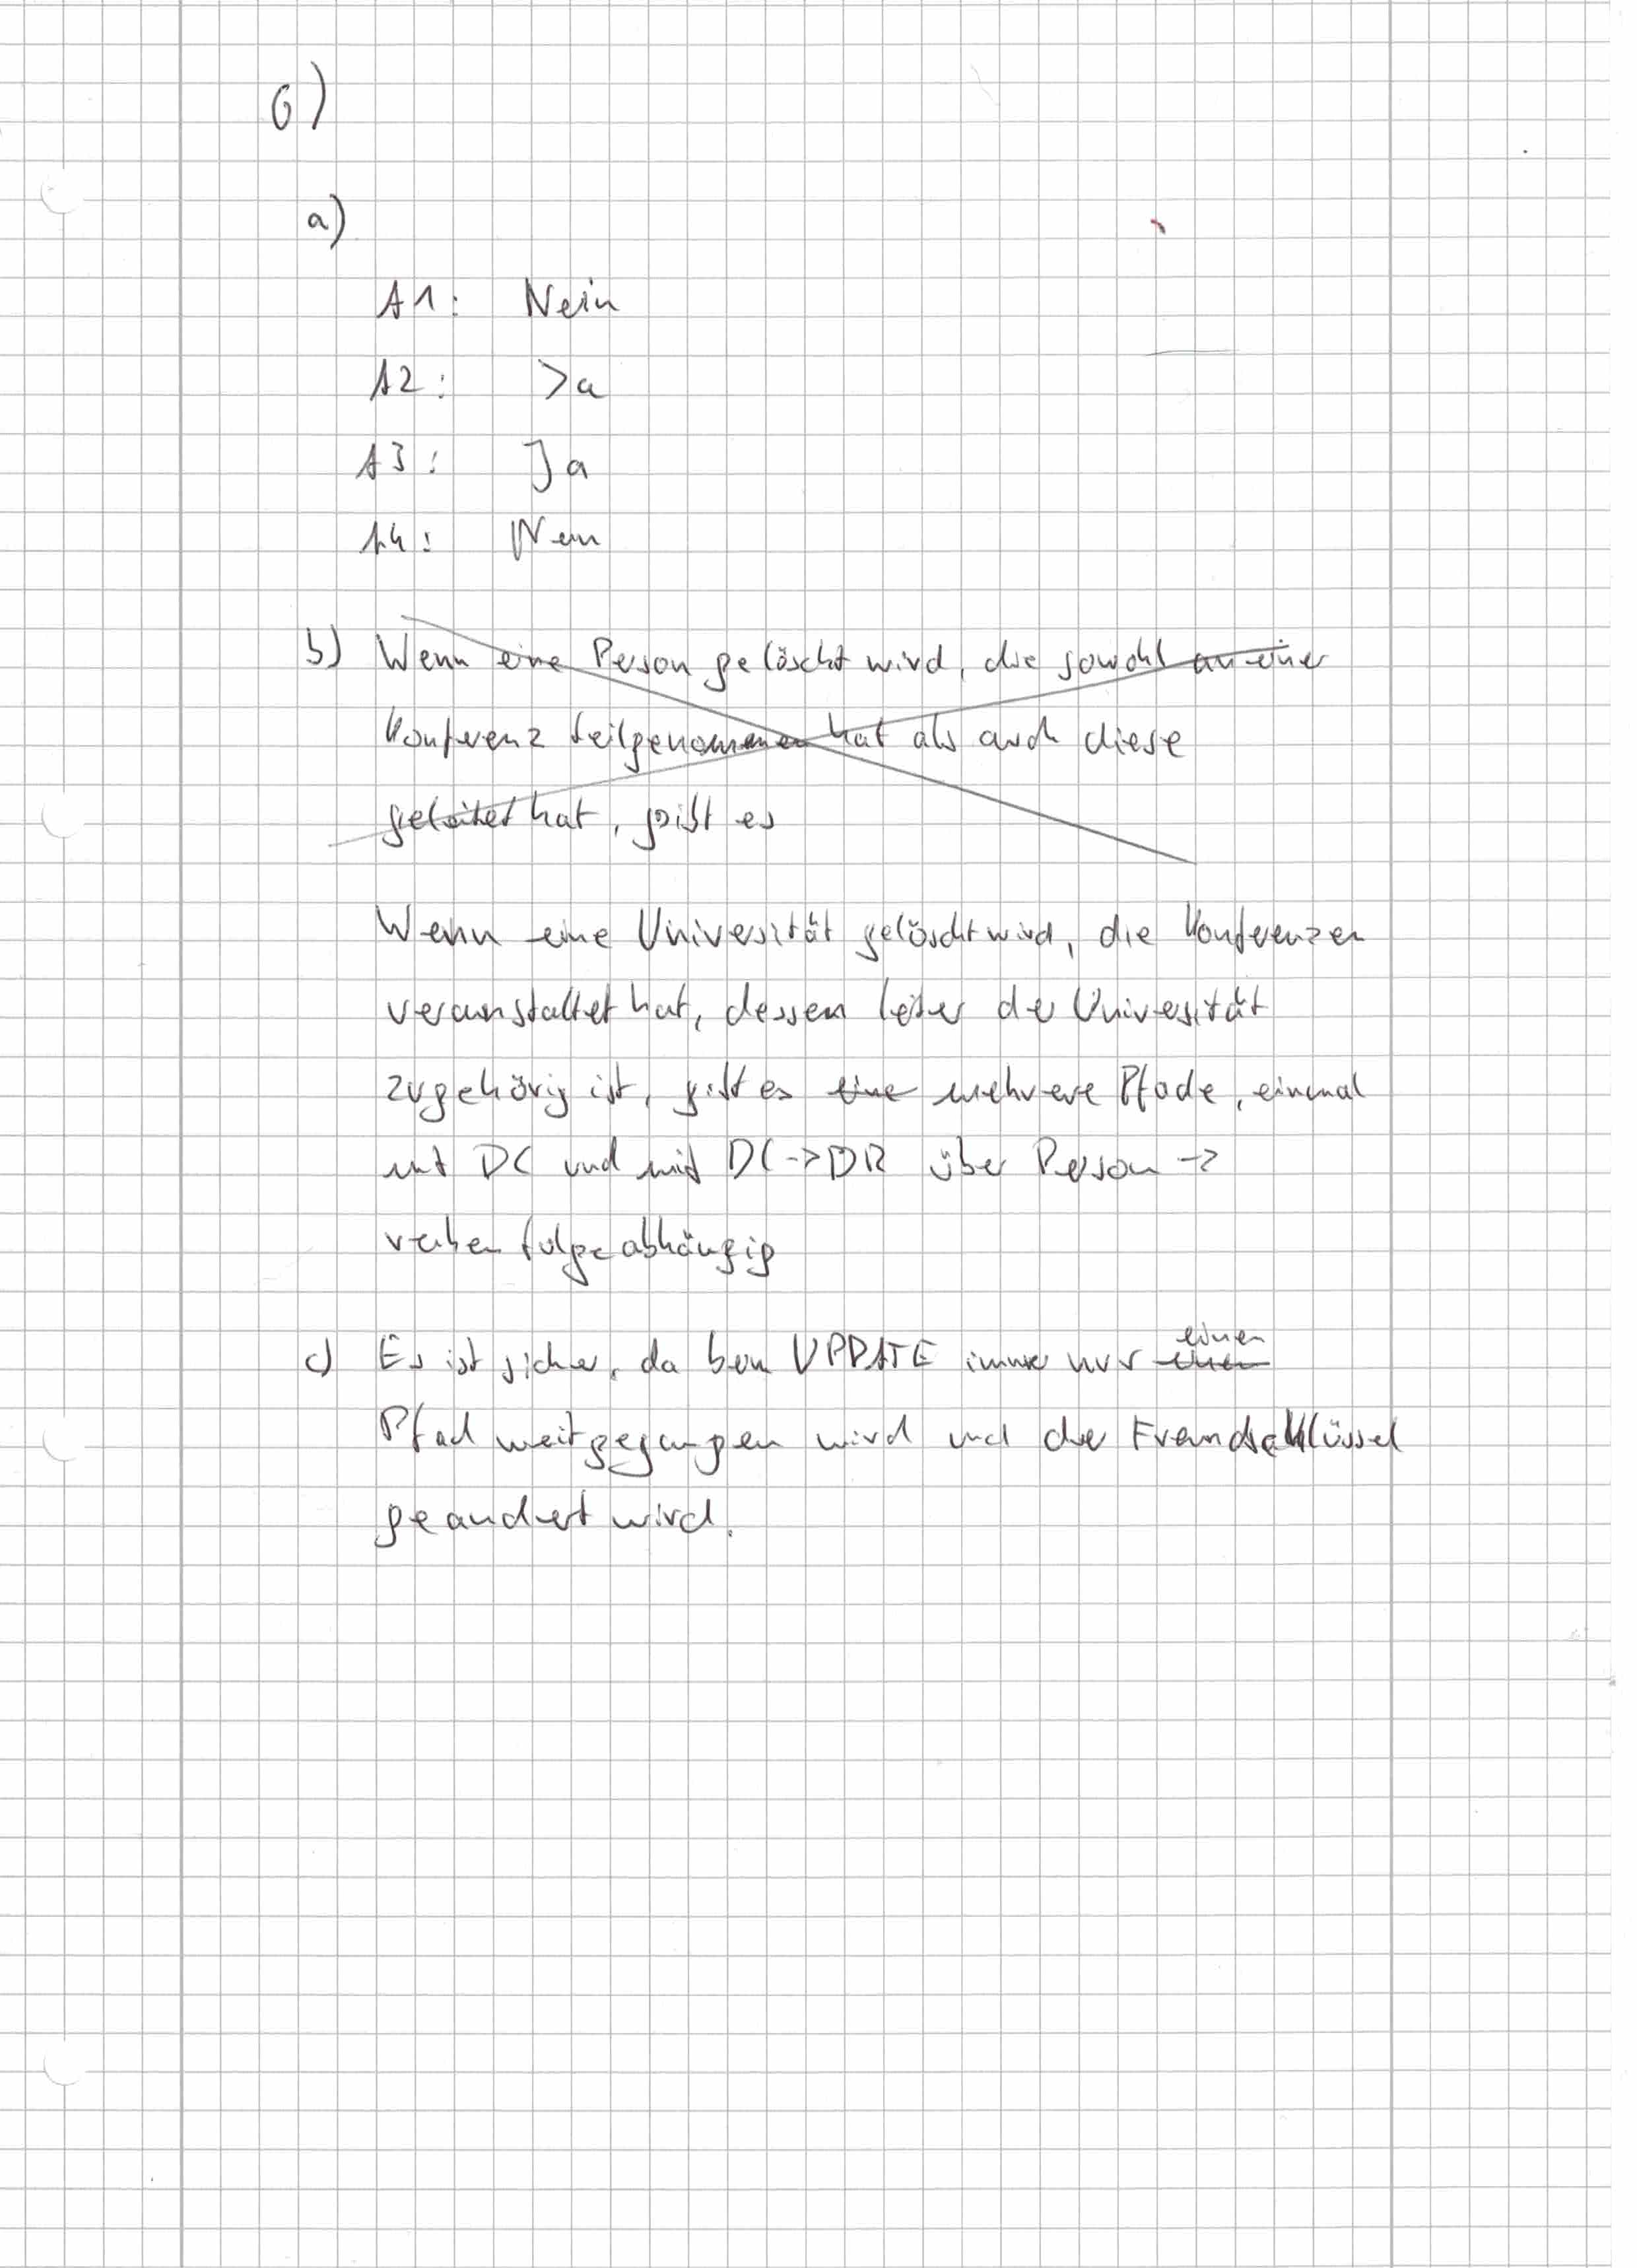 6)
a)
A1: Nein
A2: Ja
A3: Ja
A4: Nein
b) Wenn eine Person gelöscht wird, die sowohl an einer
Konferenz teilgenommen hat als auch diese
geleitet hat, gibt es
Wenn eine Universität gelöscht wird, die Konferenzen
veranstaltet hat, dessen leiter der Universität
zugehörig ist, gibt es eine mehrere Pfade, einmal
mit DC und mit DC->DR über Person ->
reihenfolgeabhängig
einen
c) Es ist sicher, da beim UPDATE immer nur
Pfad weitgegangen wird und der Fremdschlüssel
geandert wird.